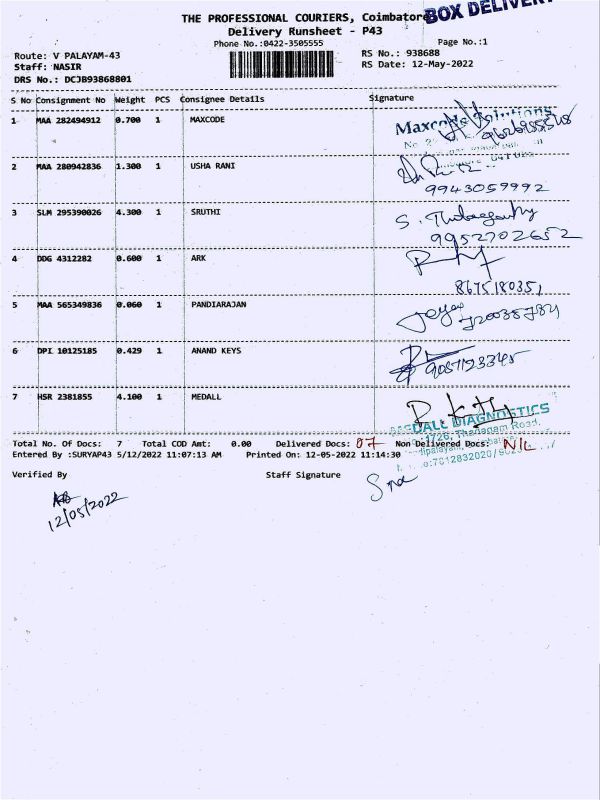 THE PROFESSIONAL COURIERS, Coimbatore
BOX DELIVERY
Delivery Runsheet - P43
Phone No.:0422-3505555
Page No.:1
Route: V PALAYAM-43
RS No.: 938688
Staff: NASIR
RS Date: 12-May-2022
DRS No.: DCJB93868801
S No Consignment No Weight PCS Consignee Details Signature
1 MAA 282494912 0.700 1 MAXCODE
Maxcode Solutions
2 MAA 280942836 1.300 1 USHA RANI
9943059992
3 SLM 295390026 4.300 1 SRUTHI
9952702652
4 DDG 4312282 0.600 1 ARK
8675180351
5 MAA 565349836 0.060 1 PANDIARAJAN
6 DPI 10125185 0.429 1 ANAND KEYS
9087123345
7 HSR 2381855 4.100 1 MEDALL
DIAGNOSTICS
Total No. Of Docs: 7 Total COD Amt: 0.00 Delivered Docs: 07 Non Delivered Docs: NIL
Entered By :SURYAP43 5/12/2022 11:07:13 AM Printed On: 12-05-2022 11:14:30
Verified By Staff Signature
12/05/2022